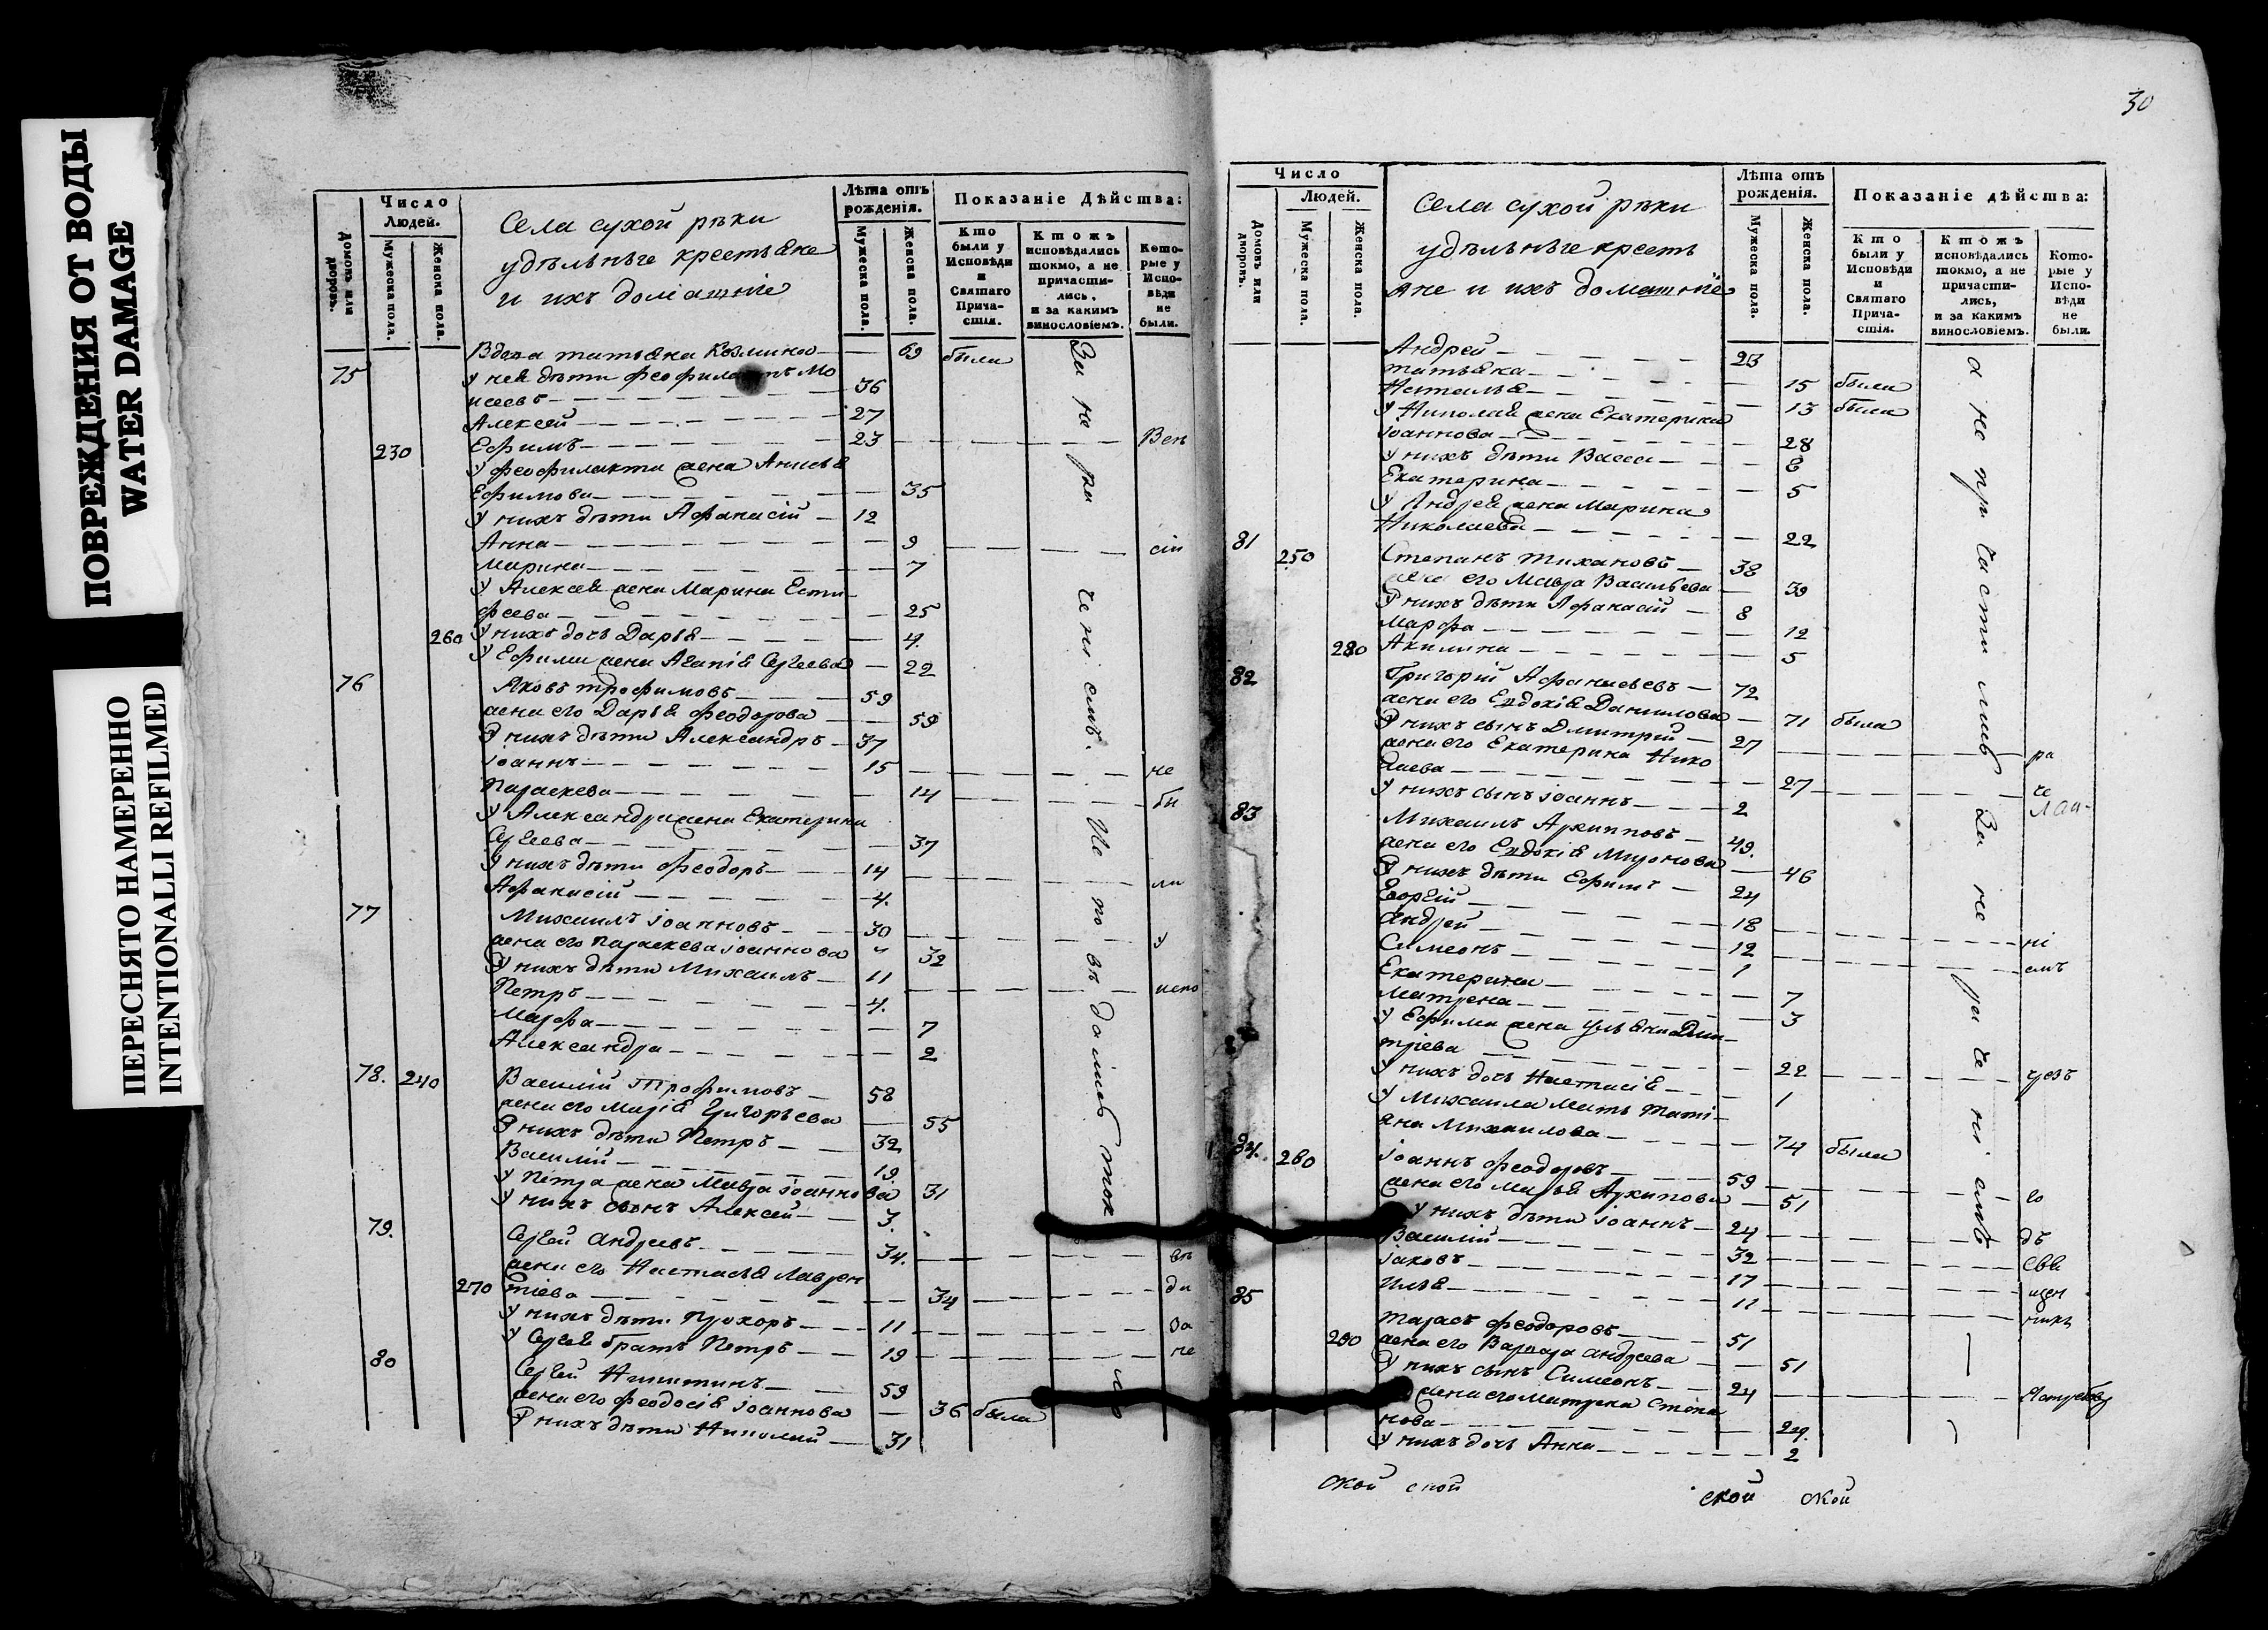 ПОВРЕЖДЕНИЯ ОТ ВОДЫ
WATER DAMAGE
ПЕРЕСНЯТО НАМЕРЕННО
INTENTIONALLI REFILMED
Число
Людей.
Домовъ или дворовъ.
Мужеска пола.
Женска пола.
Села сухой рѣки
удѣльныe крестьяне
и ихъ домашніе
Лѣта отъ рожденія.
Мужеска пола.
Женска пола.
Показаніе Дѣйства:
Кто были у Исповѣди и Святаго Причастія.
Ктожъ исповѣдались токмо, а не причастились, и за какимъ винословіемъ.
Которые у Исповѣди не были.
Вдова татьяна Козмина — 69 была
75 У нея дѣти феофилактъ Мо
исеевъ — 36
Алексей — 27
230 Ефимъ — 23
У феофилакта жена Анисья
Ефимова — 35
У нихъ дѣти Афанасій — 12
Анна — 9
Марина — 7
У Алексея жена Марина Ести
феева — 25
260 У нихъ дочь Дарья — 4.
У Ефима жена Агапія Сергеева — 22
76 Яковъ трофимовъ — 59
жена его Дарья феодорова — 59
У нихъ дѣти Александръ — 37
іоаннъ — 15
Параскева — 14
У Александра жена Екатерина
Сергеева — 37
У нихъ дѣти феодоръ — 14
Афанасій — 4.
77 Михаилъ іоанновъ — 30
жена его параскева іоаннова 32
У нихъ дѣти Михаилъ — 11
Петръ — 4.
Марфа — 7
Александра — 2
78. 240 Василій Трофимовъ — 58
жена его Марія Григорьева — 55
У нихъ дѣти Петръ — 32
Василій — 19
У Петра жена Мавра іоаннова 31
У нихъ сынъ Алексей — 3.
79. Сергей Андреевъ — 34.
жена его Настасья Лаврен
270 тіева — 34
У нихъ дѣти Прохоръ — 11
У Сергея братъ Петръ — 19
80 Сергей Никитинъ — 59
жена его феодосія іоаннова — 36 была
У нихъ дѣти Николай — 31
За не ра че ні емъ. Ис по вѣ дались ток
30
Число
Людей.
Домовъ или дворовъ.
Мужеска пола.
Женска пола.
Села сухой рѣки
удѣльныe кресть
яне и ихъ домашніе
Лѣта отъ рожденія.
Мужеска пола.
Женска пола.
Показаніе дѣйства:
Кто были у Исповѣди и Святаго Причастія.
Ктожъ исповѣдались токмо, а не причастились, и за какимъ винословіемъ.
Которые у Исповѣди не были.
Андрей — 23
татьяна — 15 была
Наталья — 13 была
У Николая жена Екатерина
іоаннова — 28
У нихъ дѣти Васса — 8
Екатерина — 5
У Андрея жена Марина
Николаева — 22
81 250 Степанъ тихановъ — 38
жена его Мавра Васильева — 39
У нихъ дѣти Афанасій — 8
Марфа — 12
280 Акилина — 5
82 Григорій Афанасьевъ — 72
жена его Евдокія Данилова — 71 была
У нихъ сынъ Дмитрій — 27
жена его Екатерина Нико
лаева — 27
У нихъ сынъ іоаннъ — 2
83 Михаилъ Архиповъ — 49.
жена его Евдокія Миронова — 46
У нихъ дѣти Ефимъ — 24
Георгій — 18
Андрей — 12
Симеонъ — 1
Екатерина — 7
Матрена — 3
У Ефима жена Ульяна Дми
тріева — 22
У нихъ дочь Настасія — 1
У Михаила мать Тати
яна Михаилова — 74 была
84. 260 іоаннъ феодоровъ — 59
жена его Марья Архипова — 51
У нихъ дѣти іоаннъ — 24
Василій — 32
іаковъ — 17
Илья — 11
85 Тарасъ феодоровъ — 51
290 жена его Варвара андреева — 51
У нихъ сынъ Симеонъ — 24
жена его Матрена Степа
нова — 24.
У нихъ дочь Анна — 2
а не при части лись За не ра че ні емъ
ской ской ской ской